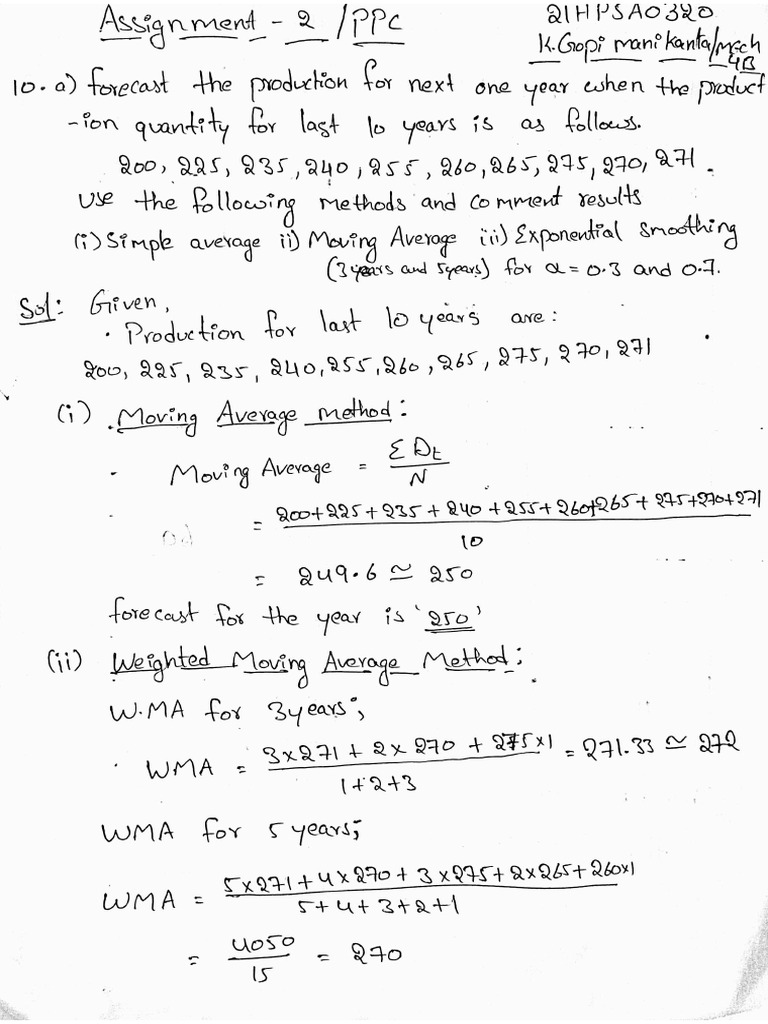 Assignment - 2 / PPC
21HPSA0320
K. Gopi mani kanta/Mech
4B
10. a) forecast the production for next one year when the product
-ion quantity for last 10 years is as follows.
200, 225, 235, 240, 255, 260, 265, 275, 270, 271.
use the following methods and comment results
(i) Simple average ii) Moving Average iii) Exponential smoothing
(3 years and 5 years) for α = 0.3 and 0.7.
Sol: Given,
. Production for last 10 years are:
200, 225, 235, 240, 255, 260, 265, 275, 270, 271
(i) . Moving Average method:
. Moving Average = Σ Dt / N
= 200+225+235+240+255+260+265+275+270+271 / 10
= 249.6 ≃ 250
forecast for the year is '250'
(ii) Weighted Moving Average Method:
W.MA for 3 years;
. WMA = 3×271 + 2×270 + 275×1 / 1+2+3 = 271.33 ≃ 272
WMA for 5 years;
WMA = 5×271+4×270+3×275+2×265+260×1 / 5+4+3+2+1
= 4050 / 15 = 270